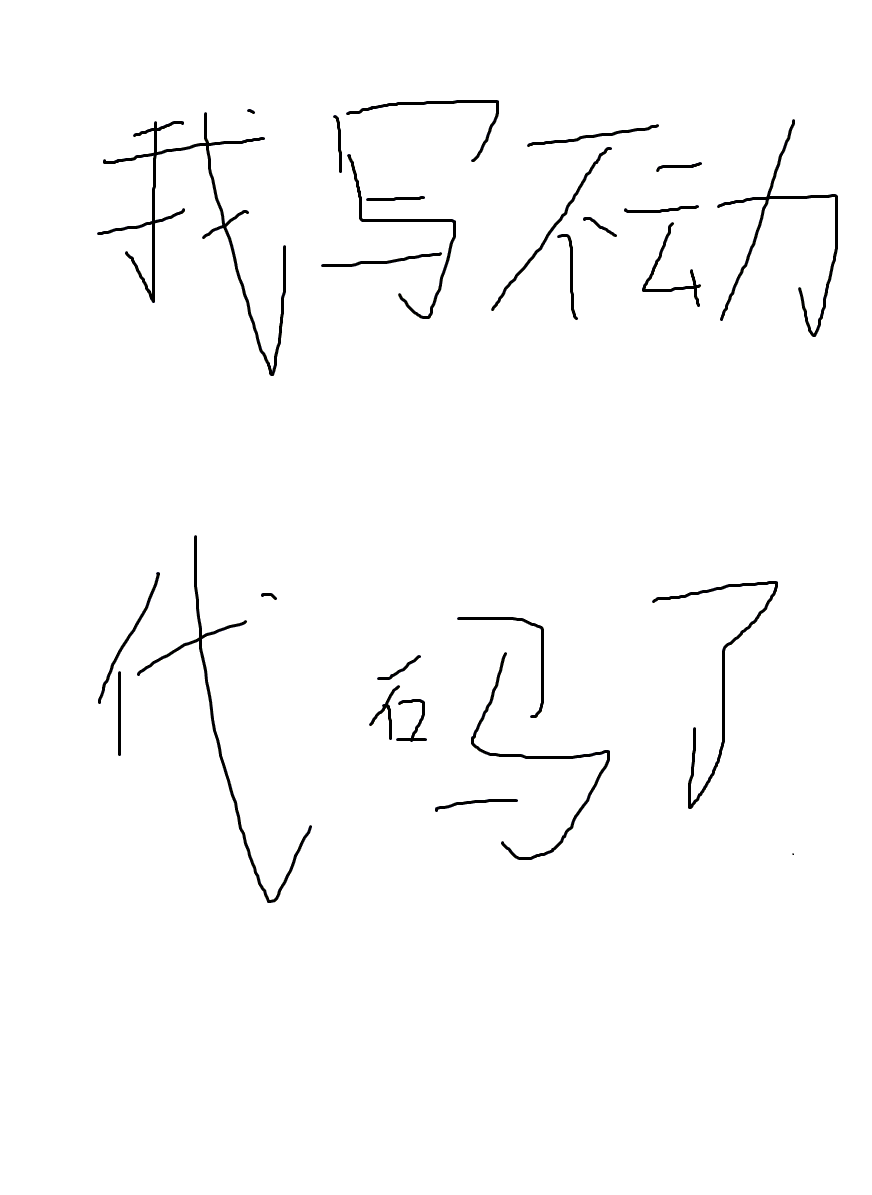 我写不动
代码了